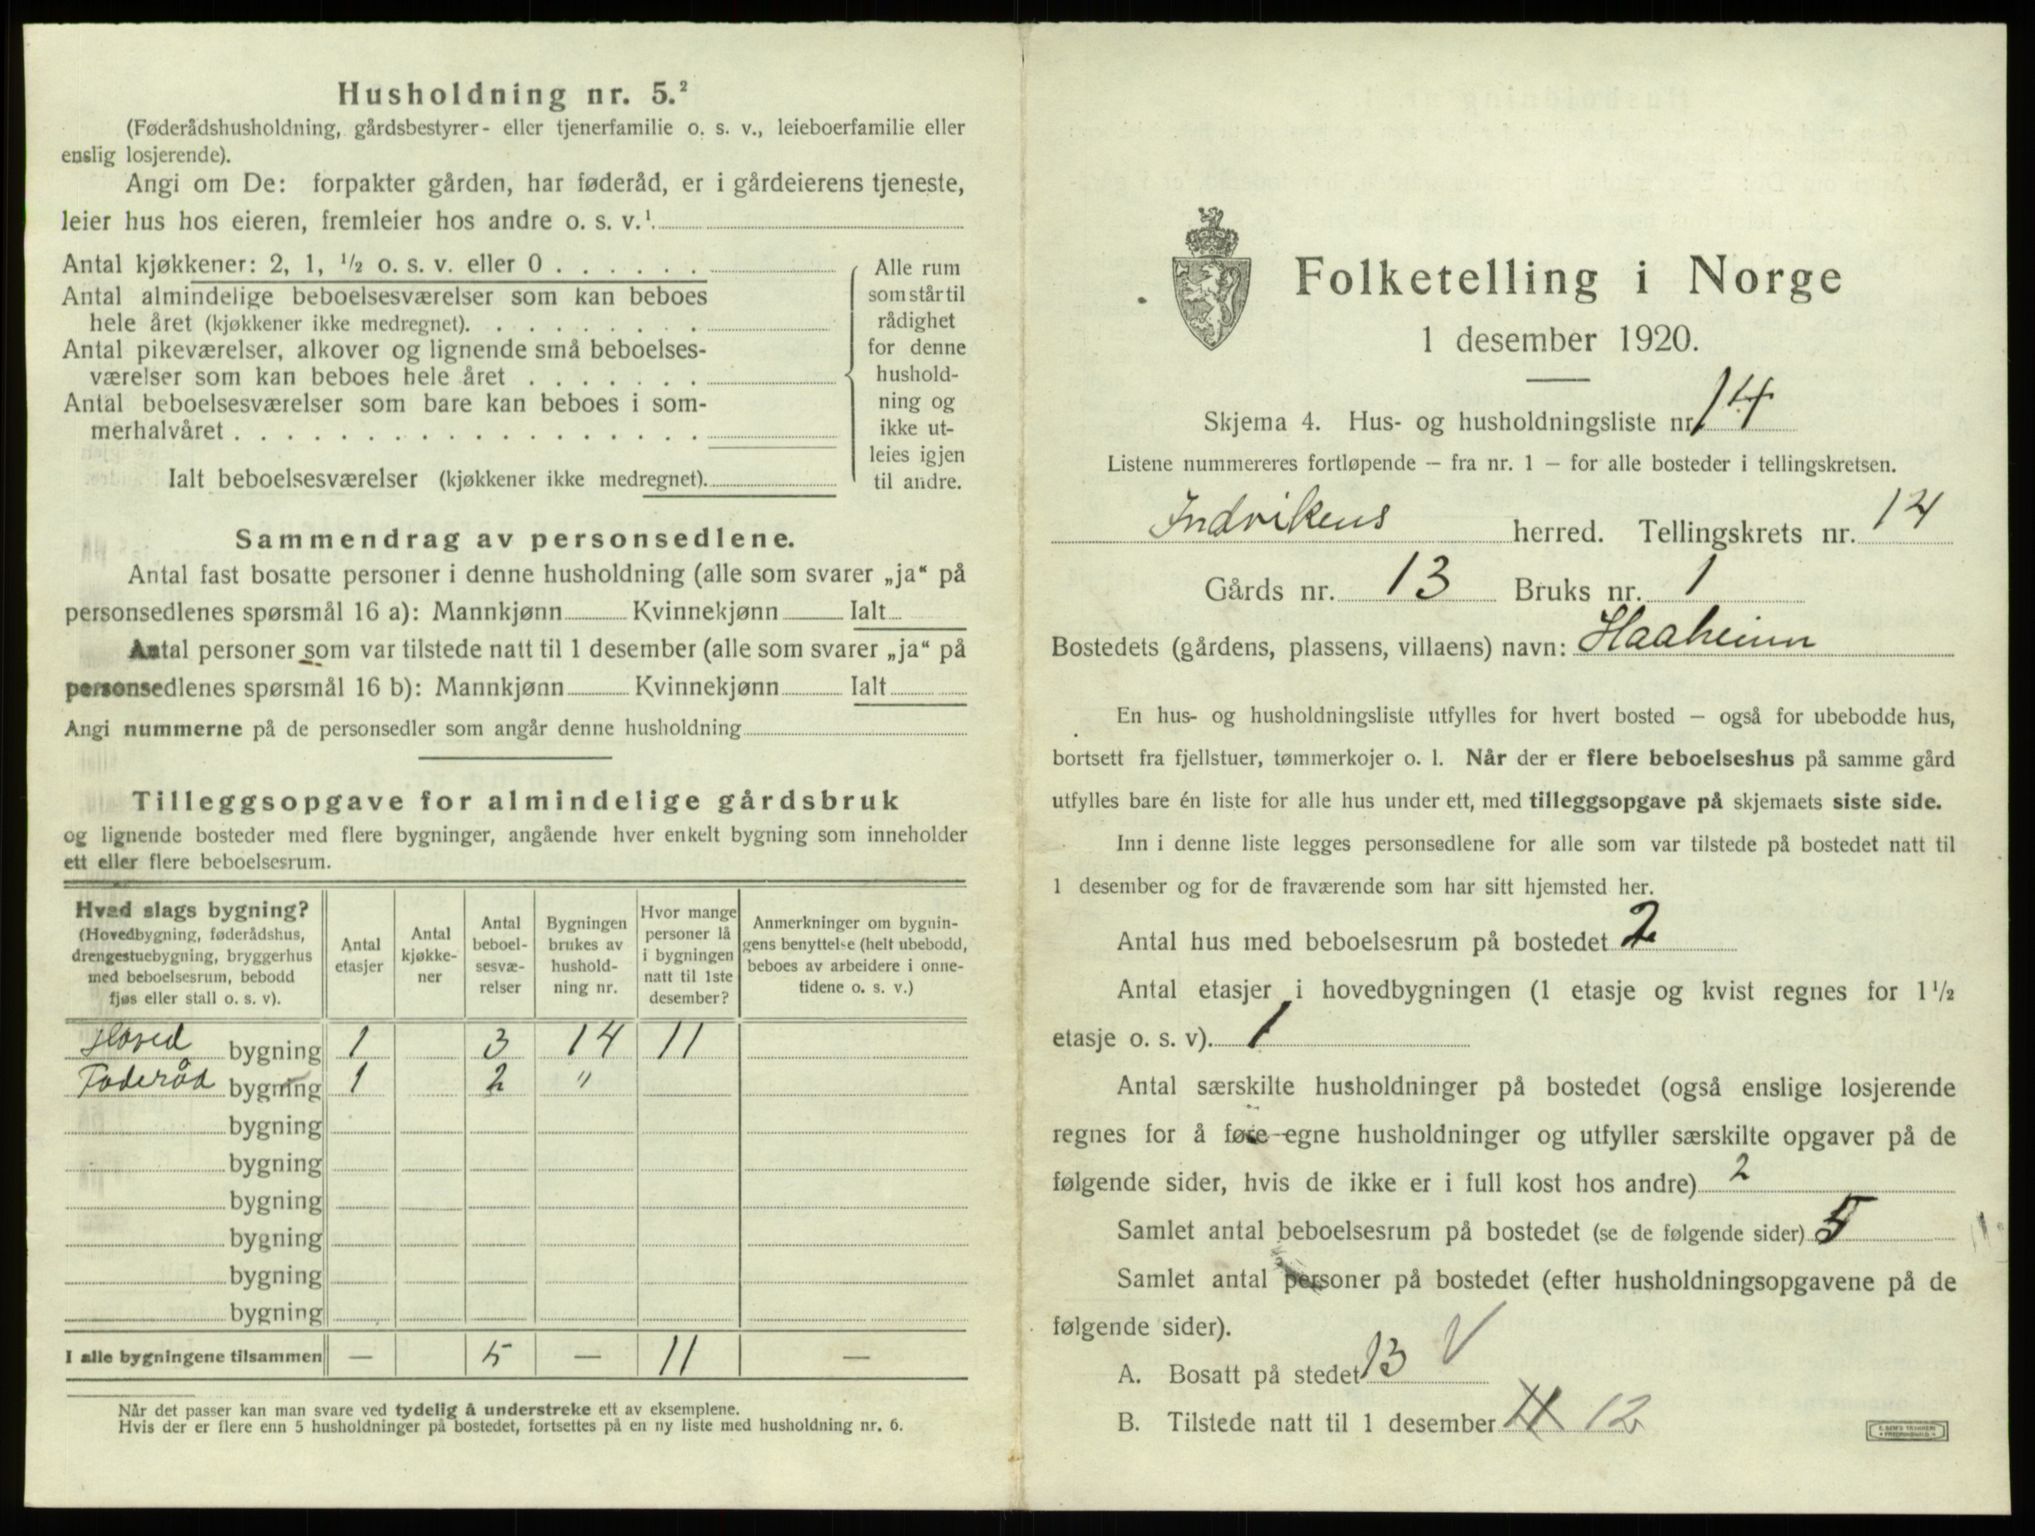 Husholdning nr. 5.²
(Føderådshusholdning, gårdsbestyrer- eller tjenerfamilie o. s. v., leieboerfamilie eller
enslig losjerende).
Angi om De: forpakter gården, har føderåd, er i gårdeierens tjeneste,
leier hus hos eieren, fremleier hos andre o. s. v.¹
Antal kjøkkener: 2, 1, ½ o. s. v. eller 0
Antal almindelige beboelsesværelser som kan beboes
hele året (kjøkkener ikke medregnet).
Antal pikeværelser, alkover og lignende små beboelses-
værelser som kan beboes hele året
Antal beboelsesværelser som bare kan beboes i som-
merhalvåret
Ialt beboelsesværelser (kjøkkener ikke medregnet).
Alle rum
som står til
rådighet
for denne
hushold-
ning og
ikke ut-
leies igjen
til andre.
Sammendrag av personsedlene.
Antal fast bosatte personer i denne husholdning (alle som svarer „ja“ på
personsedlenes spørsmål 16 a): Mannkjønn Kvinnekjønn Ialt
Antal personer som var tilstede natt til 1 desember (alle som svarer „ja“ på
personsedlenes spørsmål 16 b): Mannkjønn Kvinnekjønn Ialt
Angi nummerne på de personsedler som angår denne husholdning
Tilleggsopgave for almindelige gårdsbruk
og lignende bosteder med flere bygninger, angående hver enkelt bygning som inneholder
ett eller flere beboelsesrum.
Hvad slags bygning?
(Hovedbygning, føderådshus,
drengestuebygning, bryggerhus
med beboelsesrum, bebodd
fjøs eller stall o. s. v).
Antal
etasjer
Antal
kjøkke-
ner
Antal
beboel-
sesvæ-
relser
Bygningen
brukes av
hushold-
ning nr.
Hvor mange
personer lå
i bygningen
natt til 1ste
desember?
Anmerkninger om bygnin-
gens benyttelse (helt ubebodd,
beboes av arbeidere i onne-
tidene o. s. v.)
Hoved bygning 1 3 14 11
Føderåd bygning 1 2 "
bygning
bygning
bygning
bygning
bygning
bygning
I alle bygningene tilsammen — 5 — 11 —
Når det passer kan man svare ved tydelig å understreke ett av eksemplene.
Hvis der er flere enn 5 husholdninger på bostedet, fortsettes på en ny liste med husholdning nr. 6.
Folketelling i Norge
1 desember 1920.
Skjema 4. Hus- og husholdningsliste nr. 14
Listene nummereres fortløpende – fra nr. 1 – for alle bosteder i tellingskretsen.
Indvikens herred. Tellingskrets nr. 14
Gårds nr. 13 Bruks nr. 1
Bostedets (gårdens, plassens, villaens) navn: Haaheim
En hus- og husholdningsliste utfylles for hvert bosted – også for ubebodde hus,
bortsett fra fjellstuer, tømmerkojer o. l. Når der er flere beboelseshus på samme gård
utfylles bare én liste for alle hus under ett, med tilleggsopgave på skjemaets siste side.
Inn i denne liste legges personsedlene for alle som var tilstede på bostedet natt til
1 desember og for de fraværende som har sitt hjemsted her.
Antal hus med beboelsesrum på bostedet 2
Antal etasjer i hovedbygningen (1 etasje og kvist regnes for 1½
etasje o. s. v). 1
Antal særskilte husholdninger på bostedet (også enslige losjerende
regnes for å føre egne husholdninger og utfyller særskilte opgaver på de
følgende sider, hvis de ikke er i full kost hos andre) 2
Samlet antal beboelsesrum på bostedet (se de følgende sider) 5
Samlet antal personer på bostedet (efter husholdningsopgavene på de
følgende sider).
A. Bosatt på stedet 13 V
B. Tilstede natt til 1 desember 11 12